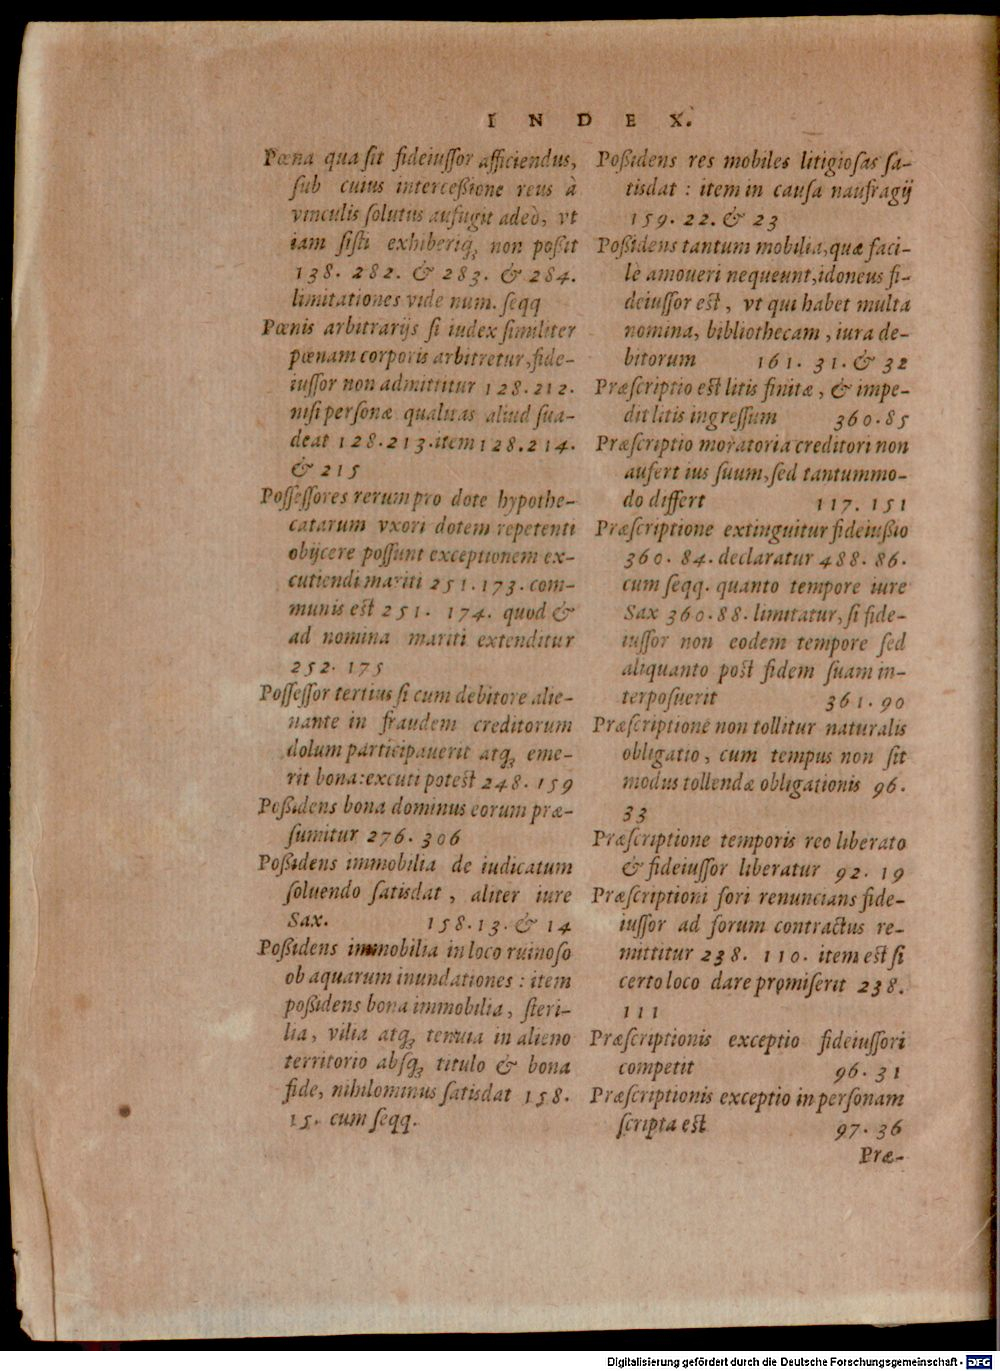 INDEX.
Pœna qua sit fideiussor afficiendus,
sub cuius interceßione reus à
vinculis solutus aufugit adeò, vt
iam sisti exhiberiq; non poßit
138. 282. & 283. & 284.
limitationes vide num. seqq
Pœnis arbitrarijs si iudex similiter
pœnam corporis arbitretur, fide-
iussor non admittitur 128. 212.
nisi personæ qualitas aliud sua-
deat 128. 213. item 128. 214.
& 215
Possessores rerum pro dote hypothe-
catarum vxori dotem repetenti
obijcere possunt exceptionem ex-
cutiendi mariti 251. 173. com-
munis est 251. 174. quod &
ad nomina mariti extenditur
252. 175
Possessor tertius si cum debitore alie-
nante in fraudem creditorum
dolum participauerit atq; eme-
rit bona: excuti potest 248. 159
Poßidens bona dominus eorum præ-
sumitur 276. 306
Poßidens immobilia de iudicatum
soluendo satisdat, aliter iure
Sax. 158. 13. & 14
Poßidens immobilia in loco ruinoso
ob aquarum inundationes: item
poßidens bona immobilia, steri-
lia, vilia atq; tenuia in alieno
territorio absq; titulo & bona
fide, nihilominus satisdat 158.
15. cum seqq.
Poßidens res mobiles litigiosas sa-
tisdat: item in causa naufragij
159. 22. & 23
Poßidens tantum mobilia, quæ faci-
lè amoueri nequeunt, idoneus fi-
deiussor est, vt qui habet multa
nomina, bibliothecam, iura de-
bitorum 161. 31. & 32
Præscriptio est litis finitæ, & impe-
dit litis ingressum 360. 85
Præscriptio moratoria creditori non
aufert ius suum, sed tantummo-
do differt 117. 151
Præscriptione extinguitur fideiußio
360. 84. declaratur 488. 86.
cum seqq. quanto tempore iure
Sax 360. 88. limitatur, si fide-
iussor non eodem tempore sed
aliquanto post fidem suam in-
terposuerit 361. 90
Præscriptione non tollitur naturalis
obligatio, cum tempus non sit
modus tollendæ obligationis 96.
33
Præscriptione temporis reo liberato
& fideiussor liberatur 92. 19
Præscriptioni fori renuncians fide-
iussor ad forum contractus re-
mittitur 238. 110. item est si
certo loco dare promiserit 238.
111
Præscriptionis exceptio fideiussori
competit 96. 31
Præscriptionis exceptio in personam
scripta est 97. 36
Præ-
Digitalisierung gefördert durch die Deutsche Forschungsgemeinschaft - DFG